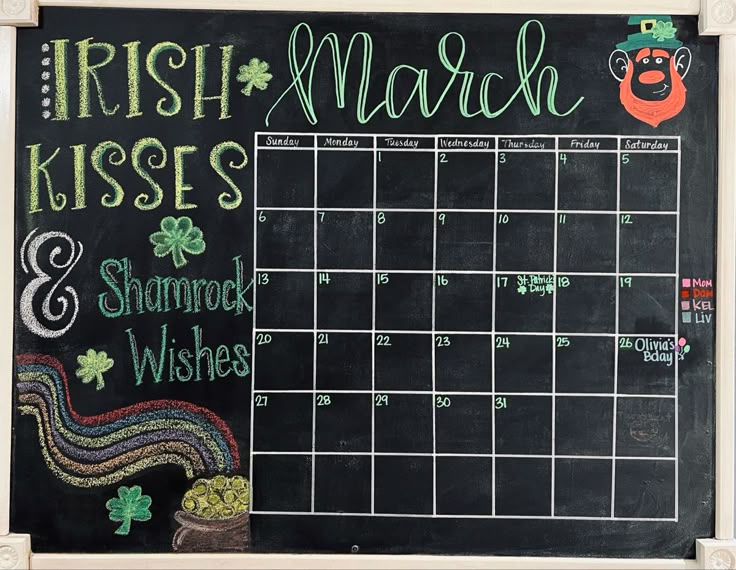 IRISH
KISSES
&
Shamrock
Wishes
March
Sunday Monday Tuesday Wednesday Thursday Friday Saturday
1 2 3 4 5
6 7 8 9 10 11 12
13 14 15 16 17 St. Patrick's Day 18 19
20 21 22 23 24 25 26 Olivia's Bday
27 28 29 30 31
MOM
DOM
KEL
LIV